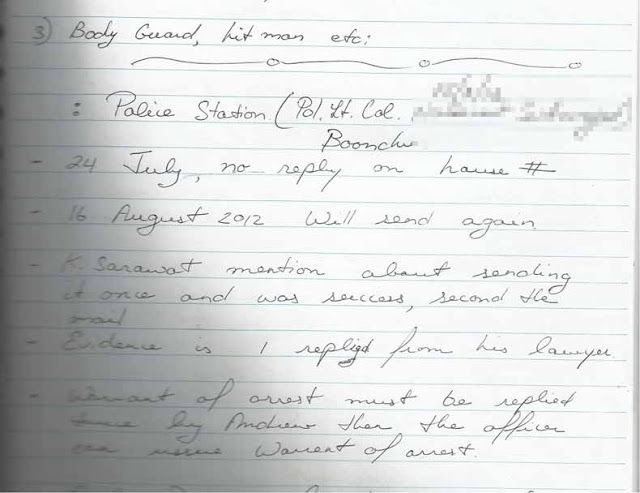 3) Body Guard, hit man etc:
: Police Station (Pol. Lt. Col.
Boonchu
- 24 July, no reply on house #
- 16 August 2012 Will send again.
- K. Sarawat mention about sending
it once and was success, second the
mail
- Evidence is 1 replied from his lawyer.
- Warrant of arrest must be replied
by Andrew then the officer
can Warrent of arrest.